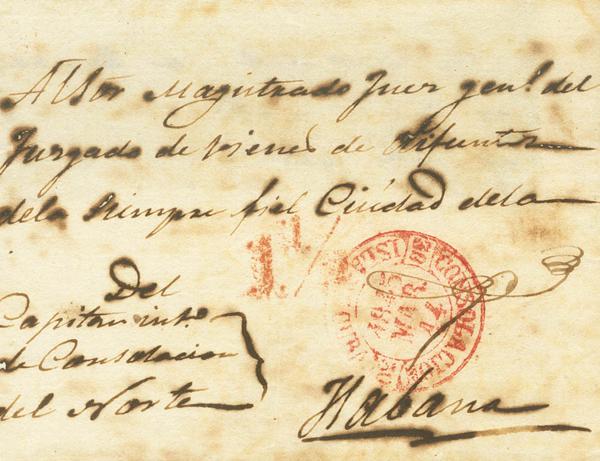 Al Sôr Magistrado Juez genl. del
Juzgado de vienes de Difuntos
dela Siempre fiel Ciudad dela
Habana
Del
Capitan into.
de Consolacion
del Norte
1½
CONSOLACION
MAR